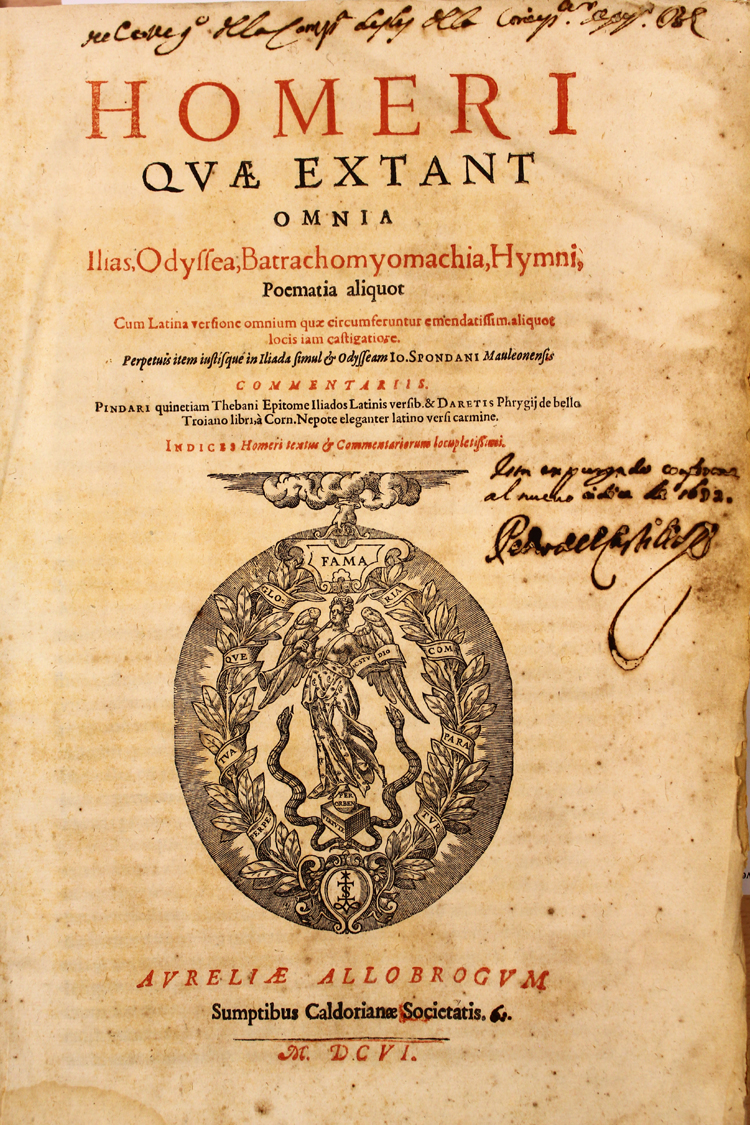 della Comp.ª de la
HOMERI
QVÆ EXTANT
OMNIA
Ilias, Odyſſea, Batrachomyomachia, Hymni,
Poematia aliquot
Cum Latina verſione omnium quæ circumferuntur emendatiſſim. aliquot
locis iam caſtigatiore.
Perpetuis item iuſtiſque in Iliada ſimul & Odyſſeam IO. SPONDANI Mauleonenſis
COMMENTARIIS.
PINDARI quinetiam Thebani Epitome Iliados Latinis verſib. & DARETIS Phrygij de bello
Troiano libri, à Corn. Nepote eleganter latino verſi carmine.
INDICES Homeri textus & Commentariorum locupletiſſimi.
al nuebo de 1632.
Pedro del Castillo
FAMA
GLO-
RIA
QVE
COM
STV
DIO
TVA
PARA
PERPE
TVR
PER
ORBEM
VIRTVTE
AVRELIÆ ALLOBROGVM
Sumptibus Caldorianæ Societatis.
M. DCVI.